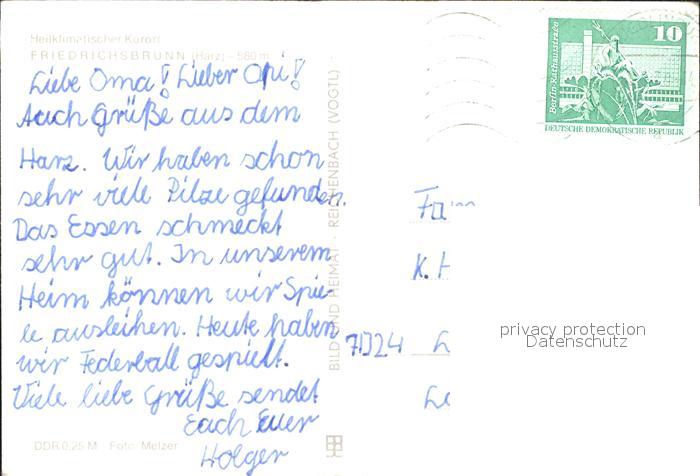 Heilklimatischer Kurort
FRIEDRICHSBRUNN (Harz) – 580 m
Liebe Oma! Lieber Opi!
Auch Grüße aus dem
Harz. Wir haben schon
sehr viele Pilze gefunden.
Das Essen schmeckt
sehr gut. In unserem
Heim können wir Spie-
le ausleihen. Heute haben
wir Federball gespielt.
Viele liebe Grüße sendet
Euch Euer
Holger
DDR 0,25 M Foto: Melzer
BILD UND HEIMAT · REICHENBACH (VOGTL)
10
Berlin-Rathausstraße
DEUTSCHE DEMOKRATISCHE REPUBLIK
Fam
K. H
7124
privacy protection
Datenschutz